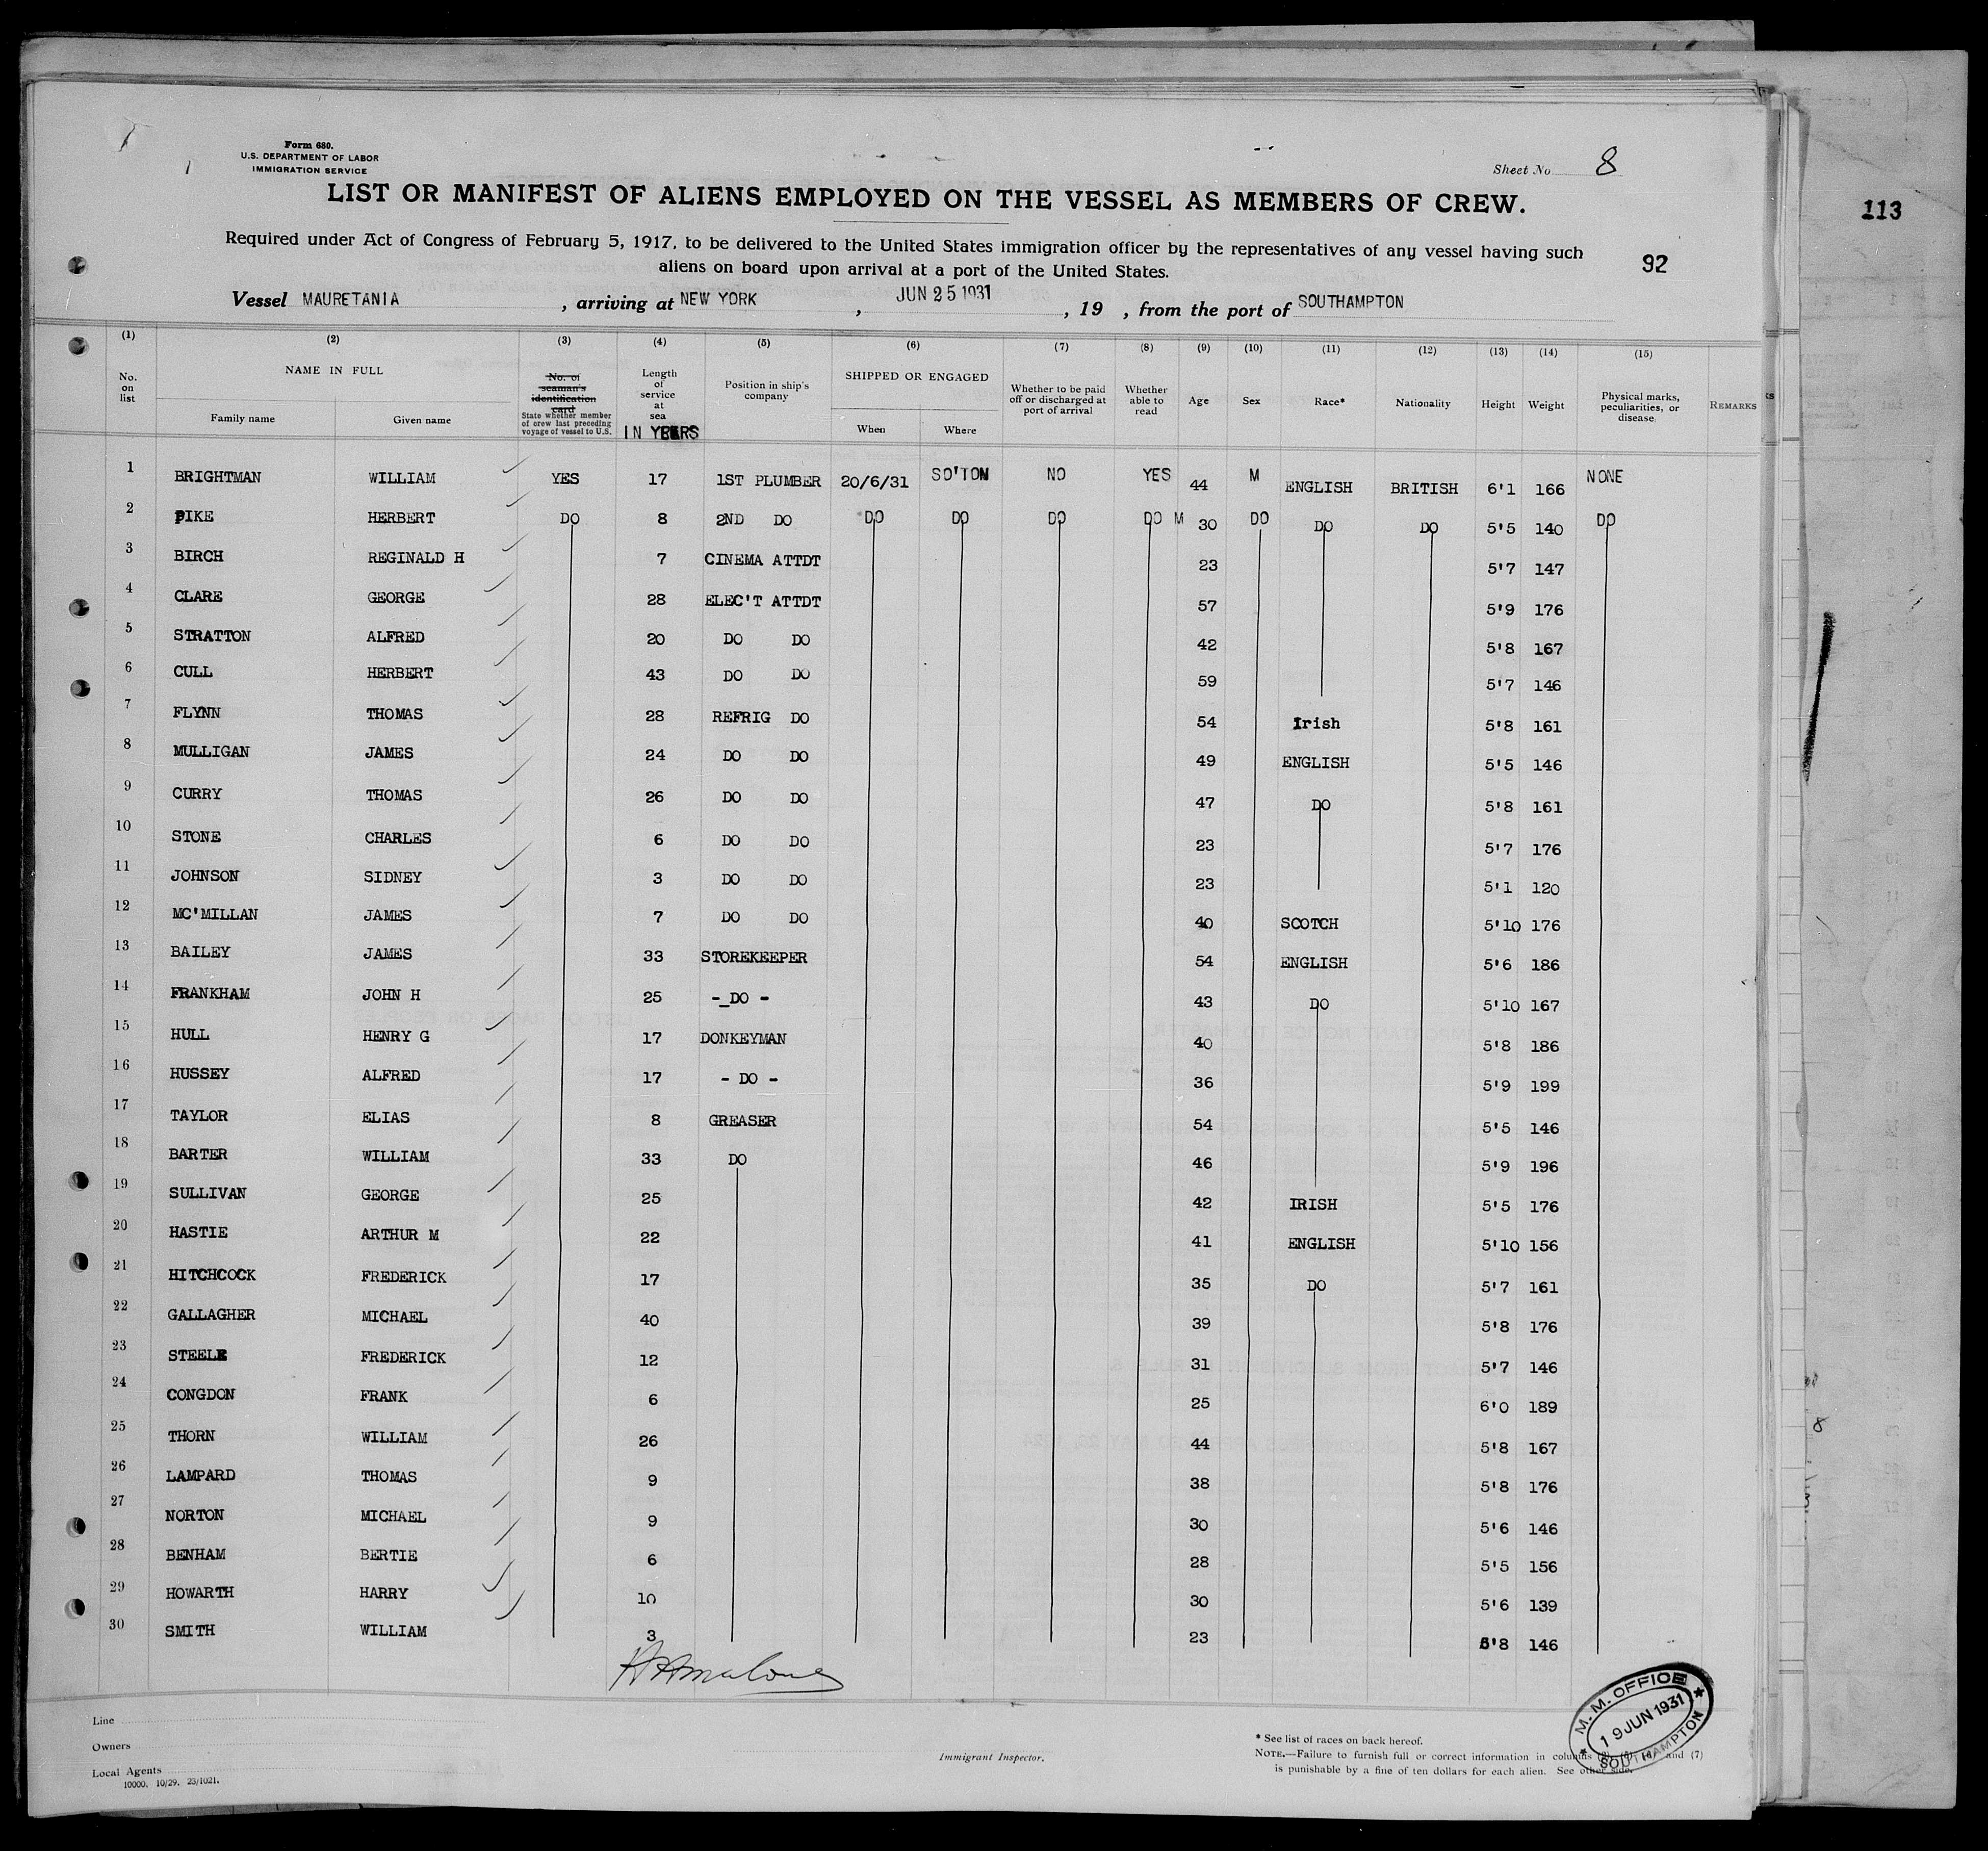 Form 680.
U.S. DEPARTMENT OF LABOR
IMMIGRATION SERVICE
Sheet No 8
LIST OR MANIFEST OF ALIENS EMPLOYED ON THE VESSEL AS MEMBERS OF CREW.
113
Required under Act of Congress of February 5, 1917, to be delivered to the United States immigration officer by the representatives of any vessel having such
aliens on board upon arrival at a port of the United States.
92
Vessel MAURETANIA , arriving at NEW YORK , JUN 25 1931 , 19 , from the port of SOUTHAMPTON
(1) (2) (3) (4) (5) (6) (7) (8) (9) (10) (11) (12) (13) (14) (15)
No. on list NAME IN FULL Family name Given name No. of seaman's identification card State whether member of crew last preceding voyage of vessel to U.S. Length of service at sea IN YEARS Position in ship's company SHIPPED OR ENGAGED When Where Whether to be paid off or discharged at port of arrival Whether able to read Age Sex Race* Nationality Height Weight Physical marks, peculiarities, or disease REMARKS
1 BRIGHTMAN WILLIAM YES 17 1ST PLUMBER 20/6/31 SO'TON NO YES 44 M ENGLISH BRITISH 6'1 166 NONE
2 PIKE HERBERT DO 8 2ND DO DO DO DO DO M 30 DO DO DO 5'5 140 DO
3 BIRCH REGINALD H 7 CINEMA ATTDT 23 5'7 147
4 CLARE GEORGE 28 ELEC'T ATTDT 57 5'9 176
5 STRATTON ALFRED 20 DO DO 42 5'8 167
6 CULL HERBERT 43 DO DO 59 5'7 146
7 FLYNN THOMAS 28 REFRIG DO 54 Irish 5'8 161
8 MULLIGAN JAMES 24 DO DO 49 ENGLISH 5'5 146
9 CURRY THOMAS 26 DO DO 47 DO 5'8 161
10 STONE CHARLES 6 DO DO 23 5'7 176
11 JOHNSON SIDNEY 3 DO DO 23 5'1 120
12 MC'MILLAN JAMES 7 DO DO 40 SCOTCH 5'10 176
13 BAILEY JAMES 33 STOREKEEPER 54 ENGLISH 5'6 186
14 FRANKHAM JOHN H 25 -_DO - 43 DO 5'10 167
15 HULL HENRY G 17 DONKEYMAN 40 5'8 186
16 HUSSEY ALFRED 17 - DO - 36 5'9 199
17 TAYLOR ELIAS 8 GREASER 54 5'5 146
18 BARTER WILLIAM 33 DO 46 5'9 196
19 SULLIVAN GEORGE 25 42 IRISH 5'5 176
20 HASTIE ARTHUR M 22 41 ENGLISH 5'10 156
21 HITCHCOCK FREDERICK 17 35 DO 5'7 161
22 GALLAGHER MICHAEL 40 39 5'8 176
23 STEELE FREDERICK 12 31 5'7 146
24 CONGDON FRANK 6 25 6'0 189
25 THORN WILLIAM 26 44 5'8 167
26 LAMPARD THOMAS 9 38 5'8 176
27 NORTON MICHAEL 9 30 5'6 146
28 BENHAM BERTIE 6 28 5'5 156
29 HOWARTH HARRY 10 30 5'6 139
30 SMITH WILLIAM 3 23 5'8 146
Line
Owners
Local Agents
10000. 10/29. 23/1021.
Immigrant Inspector.
M. M. OFFICE
19 JUN 1931
SOUTHAMPTON
* See list of races on back hereof.
NOTE.—Failure to furnish full or correct information in columns and (7)
is punishable by a fine of ten dollars for each alien. See other side.